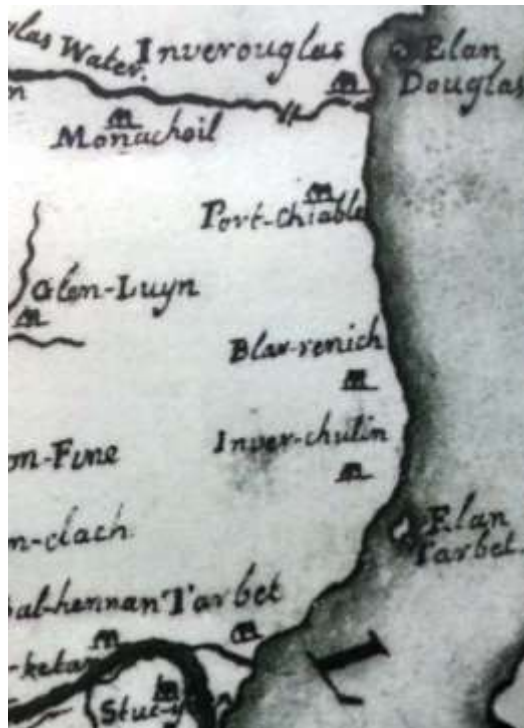 glas Water.
Inverouglas
Elan
Douglas
n
Monachoil
Port-chiable
Glen-Luyn
Blar-renich
Inver-chulin
on-Fine
Elan
Tarbet
n-clach
al-hennan Tarbet
-ketan
Stuc-